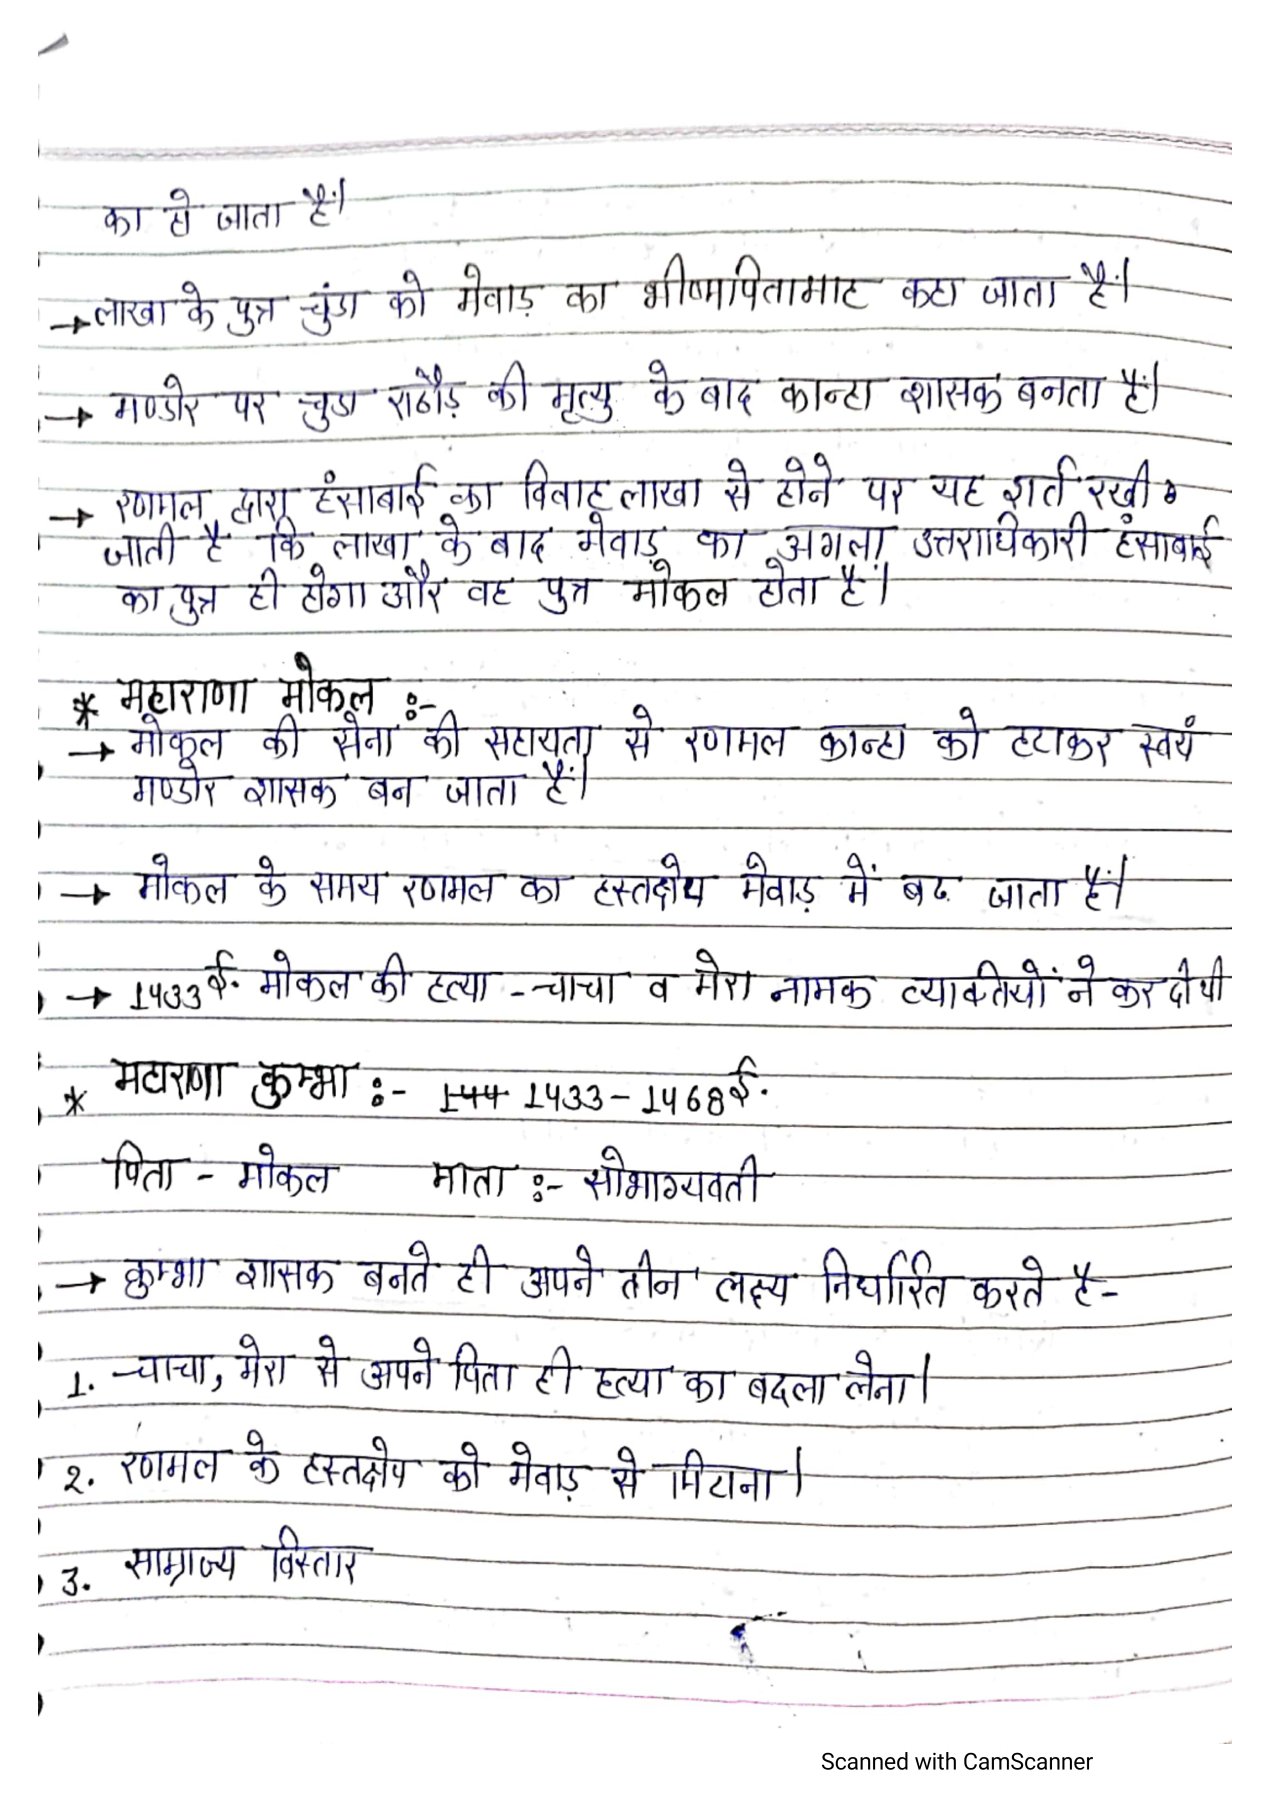 का हो जाता हैं।
→ लाखा के पुत्र चुंडा को मेवाड़ का भीष्मपितामाह कहा जाता हैं।
→ मण्डोर पर चुडा राठौड़ की मृत्यु के बाद कान्हा शासक बनता हैं।
→ रणमल द्वारा हंसाबाई का विवाह लाखा से होने पर यह शर्त रखी
जाती है कि लाखा के बाद मेवाड़ का अगला उत्तराधिकारी हंसाबाई
का पुत्र ही होगा और वह पुत्र मोकल होता है।
* महाराणा मोकल :-
→ मोकल की सेना की सहायता से रणमल कान्हा को हटाकर स्वयं
मण्डोर शासक बन जाता हैं।
→ मोकल के समय रणमल का हस्तक्षेप मेवाड़ में बढ जाता हैं।
→ 1433 ई. मोकल की हत्या - चाचा व मेरा नामक व्यक्तियों ने कर दी थी
* महाराणा कुम्भा :- 144 1433 - 1468 ई.
पिता - मोकल माता :- सोभाग्यवती
→ कुम्भा शासक बनते ही अपने तीन लक्ष्य निर्धारित करते है -
1. चाचा, मेरा से अपने पिता ही हत्या का बदला लेना।
2. रणमल के हस्तक्षेप को मेवाड़ से मिटाना।
3. साम्राज्य विस्तार
Scanned with CamScanner